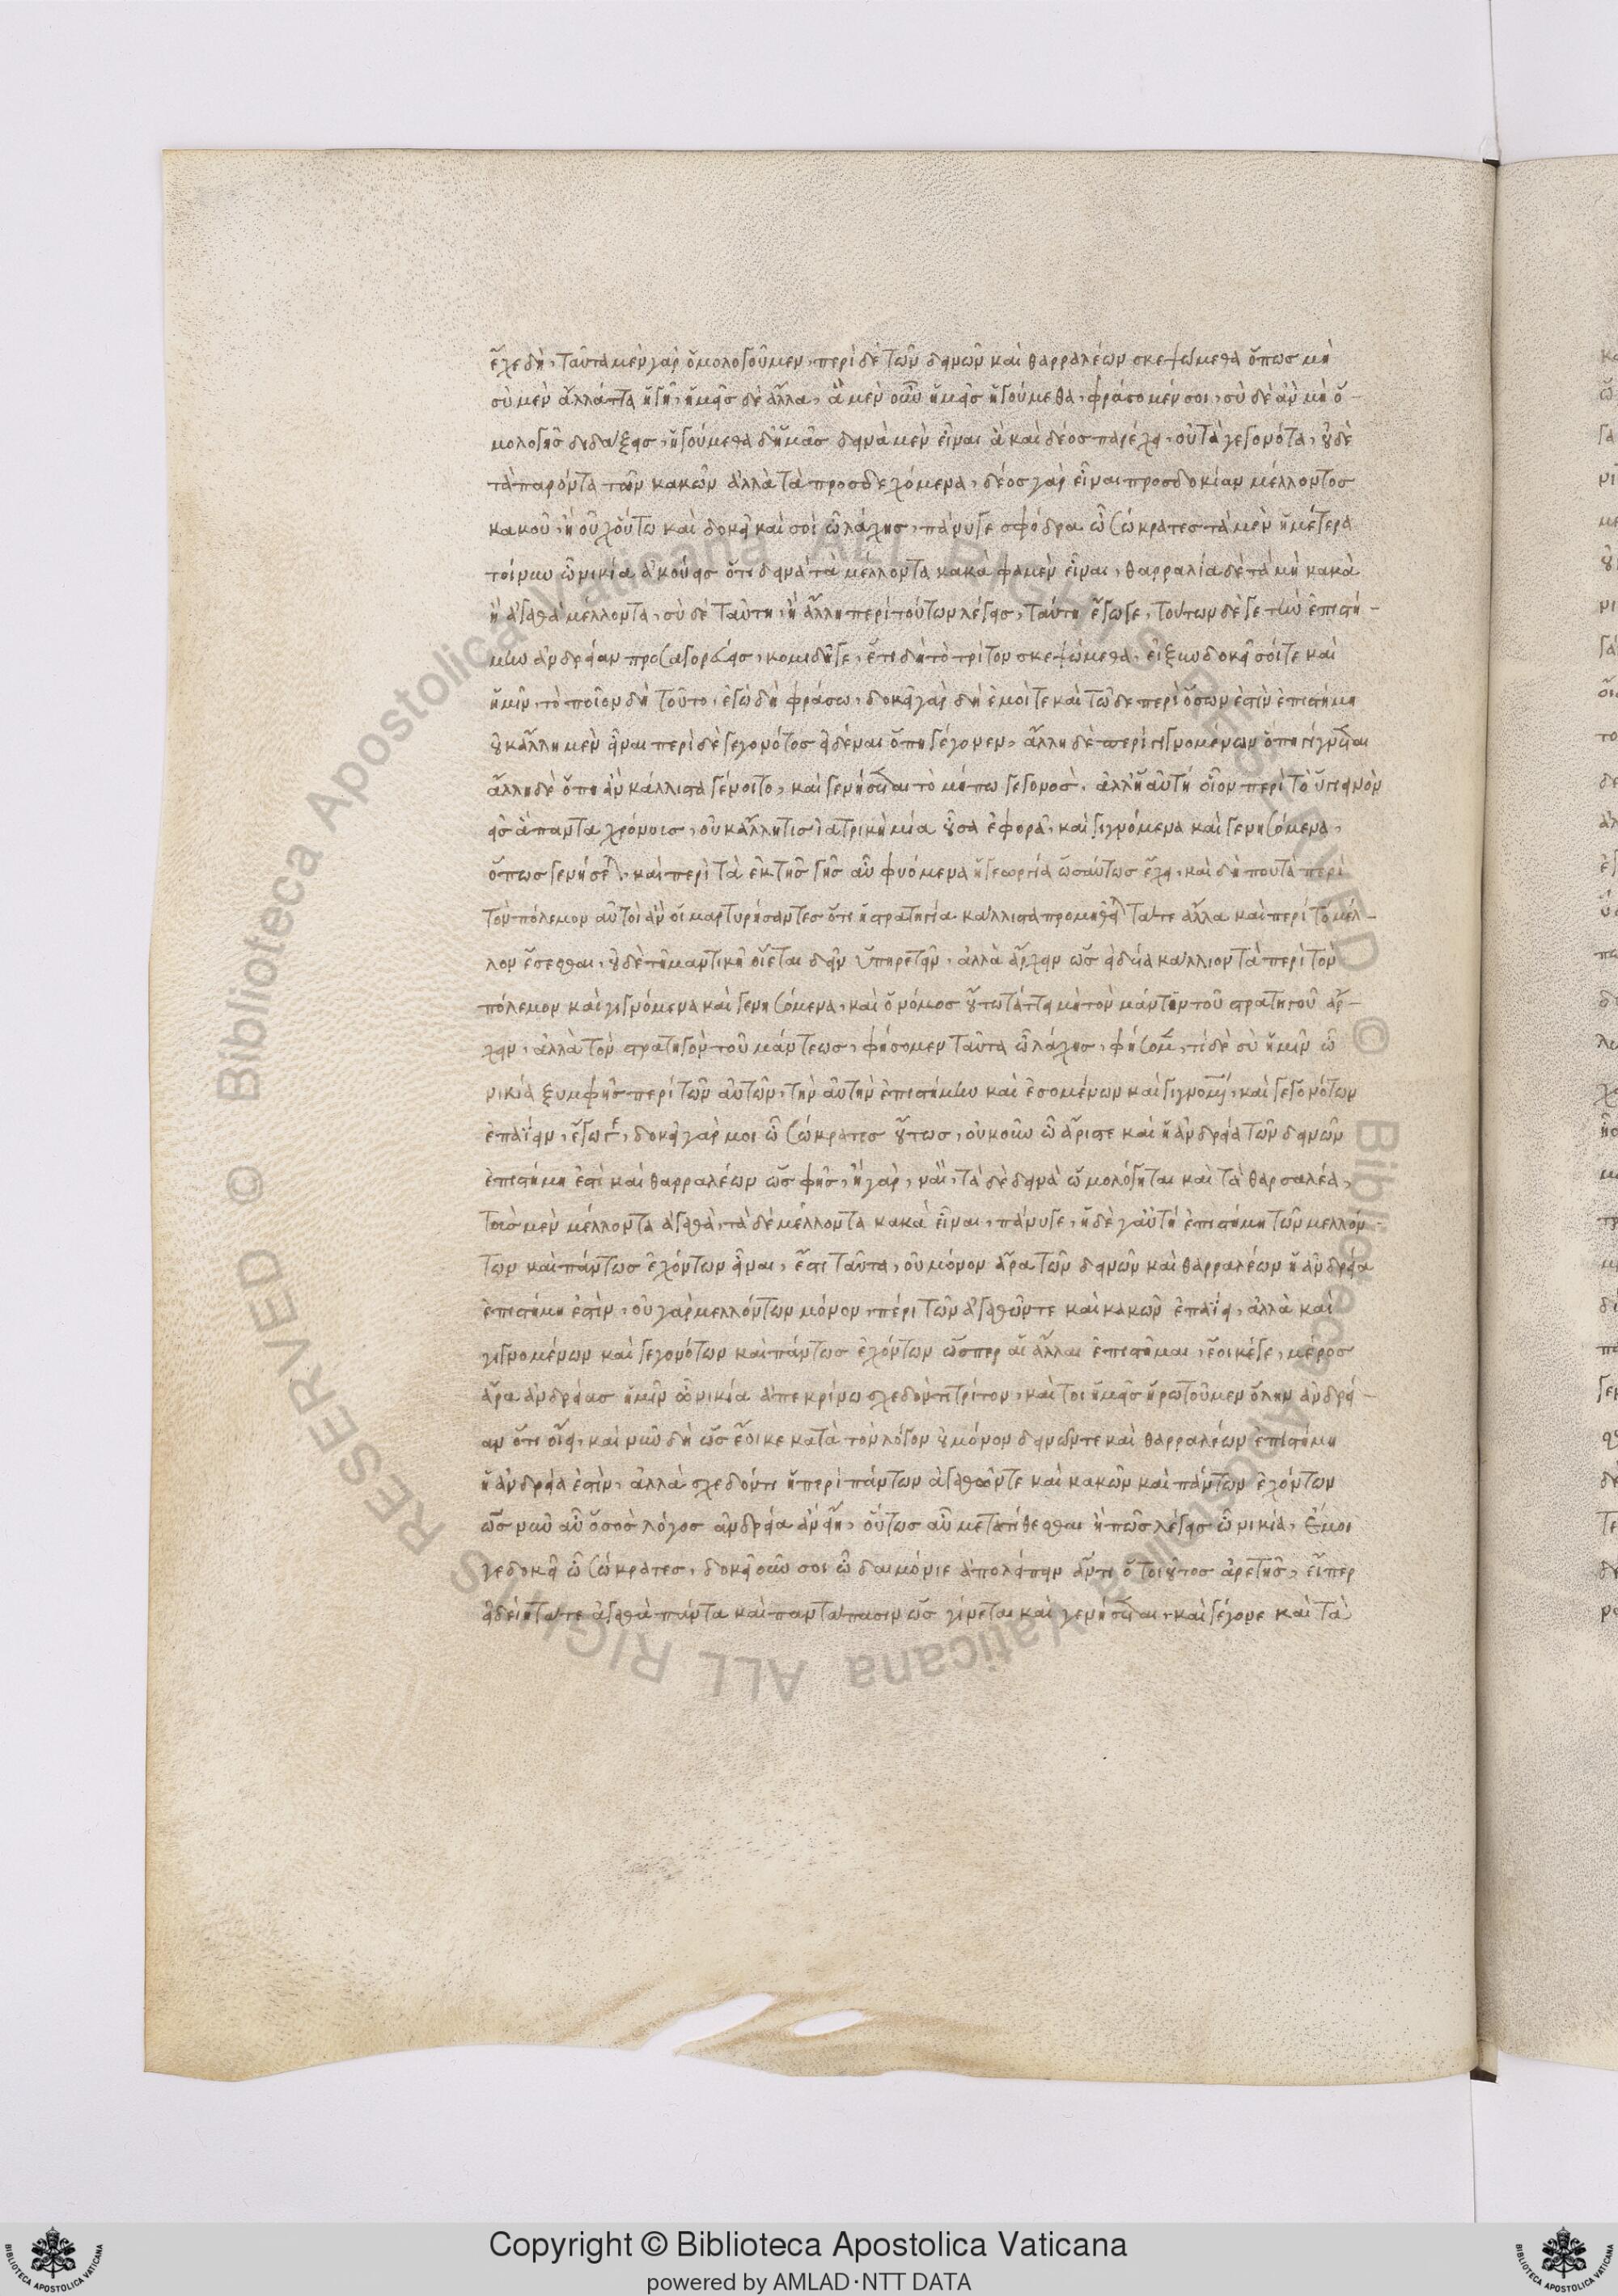 ἔχε δὴ, ταῦτα μὲν γὰρ ὁμολογοῦμεν, περὶ δὲ τῶν δεινῶν καὶ θαρραλέων σκεψώμεθα ὅπως μὴ
σὺ μὲν ἄλλάττα ἡγῇ, ἡμεῖς δὲ ἄλλα, ἃ μὲν οὖν ἡμεῖς ἡγούμεθα, φράσομέν σοι, σὺ δὲ ἂν μὴ ὁ-
μολογῇς διδάξεις, ἡγούμεθα δἡμᾶς δεινὰ μὲν εἶναι ἃ καὶ δέος παρέχει, οὐ τὰ γεγονότα, οὐδὲ
τὰ παρόντα τῶν κακῶν ἀλλὰ τὰ προσδεχόμενα, δέος γὰρ εἶναι προσδοκίαν μέλλοντος
κακοῦ, ἢ οὐχ οὕτω καὶ δοκεῖ καὶ σοὶ ὦ λάχης, πάνυ γε σφόδρα ὦ σώκρατες τὰ μὲν ἡμέτερα
τοίνυν ὦ νικία ἀκούεις ὅτι δεινὰ τὰ μέλλοντα κακὰ φαμὲν εἶναι, θαρραλία δὲ τὰ μὴ κακὰ
ἢ ἀγαθὰ μέλλοντα, σὺ δὲ ταύτη, ἢ ἄλλη περὶ τούτων λέγεις, ταύτη ἔγωγε, τούτων δέ γε τὴν ἐπιστή-
μην ἀνδρείαν προσαγορεύεις, κομιδῇ γε, ἔτι δὴ τὸ τρίτον σκεψώμεθα, εἰ ξυνδοκεῖ σοί τε καὶ
ἡμῖν, τὸ ποῖον δὴ τοῦτο, ἐγὼ δὴ φράσω, δοκεῖ γὰρ δὴ ἐμοί τε καὶ τῶδε περὶ ὅσων ἐστὶν ἐπιστήμη
οὐκ ἄλλη μὲν εἶναι περὶ δὲ γεγονότος εἰδέναι ὅπη γέγονεν, ἄλλη δὲ περὶ γιγνομένων ὅπη γίγνεται
ἄλλη δὲ ὅπη ἂν κάλλιστα γένοιτο, καὶ γενήσεται τὸ μήπω γεγονὸς, ἀλλἡ αὐτή οἷον περὶ τὸ ὑγιεινὸν
εἰς ἅπαντα χρόνοις, οὐκ ἄλλη τις ἰατρικὴ μία οὖσα ἐφορᾶ, καὶ γιγνόμενα καὶ γενησόμενα,
ὅπως γενήσεται, καὶ περὶ τὰ ἐκ τῆς γῆς αὖ φυόμενα ἡ γεωργία ὡσαύτως ἔχει, καὶ δὴ που τὰ περὶ
τὸν πόλεμον αὐτοὶ ἂν οἱ μαρτυρήσαντες ὅτι ἡ στρατηγία κάλλιστα προμηθεῖται τά τε ἄλλα καὶ περὶ τὸ μέλ-
λον ἔσεσθαι, οὐδὲ τῇ μαντικῇ οἴεται δεῖν ὑπηρετεῖν, ἀλλὰ ἄρχειν ὡς εἰδυῖα κάλλιον τὰ περὶ τὸν
πόλεμον καὶ γιγνόμενα καὶ γενησόμενα, καὶ ὁ νόμος οὕτω τάττει μὴ τὸν μάντιν τοῦ στρατηγοῦ ἄρ-
χειν, ἀλλὰ τὸν στρατηγὸν τοῦ μάντεως, φήσομεν ταῦτα ὦ λάχης, φήσομεν, τί δὲ σὺ ἡμῖν ὦ
νικία ξυμφῂς περὶ τῶν αὐτῶν, τὴν αὐτὴν ἐπιστήμην καὶ ἐσομένων καὶ γιγνομένων, καὶ γεγονότων
ἐπαΐειν, ἔγωγε, δοκεῖ γάρ μοι ὦ σώκρατες οὕτως, οὐκοῦν ὦ ἄριστε καὶ ἡ ἀνδρεία τῶν δεινῶν
ἐπιστήμη ἐστὶ καὶ θαρραλέων ὡς φῂς, ἦ γάρ, ναὶ, τὰ δὲ δεινὰ ὡμολόγηται καὶ τὰ θαρσαλέα,
τοις μὲν μέλλοντα ἀγαθὰ, τὰ δὲ μέλλοντα κακὰ εἶναι, πάνυ γε, ἡ δὲ γαὐτὴ ἐπιστήμη τῶν μελλόν-
των καὶ πάντως ἐχόντων εἶναι, ἔστι ταῦτα, οὐ μόνον ἄρα τῶν δεινῶν καὶ θαρραλέων ἡ ἀνδρεία
ἐπιστήμη ἐστὶν, οὐ γὰρ μελλόντων μόνον, πέρι τῶν ἀγαθῶν τε καὶ κακῶν ἐπαΐει, ἀλλὰ καὶ
γιγνομένων καὶ γεγονότων καὶ πάντως ἐχόντων ὥσπερ αἱ ἄλλαι ἐπιστῆμαι, ἔοικέ γε, μέρος
ἄρα ἀνδρείας ἡμῖν ὦ νικία ἀπεκρίνω σχεδόν τι τρίτον, καὶ τοι ἡμεῖς ἠρωτοῦμεν ὅλην ἀνδρεί-
αν ὅτι οἴει, καὶ νῦν δὴ ὡς ἔοικε κατὰ τὸν λόγον οὐ μόνον δεινῶν τε καὶ θαρραλέων ἐπιστήμη
ἡ ἀνδρεία ἐστὶν, ἀλλὰ σχεδόν τι ἡ περὶ πάντων ἀγαθῶν τε καὶ κακῶν καὶ πάντων ἐχόντων
ὡς νῦν αὖ ὅσος λόγος ἀνδρεία ἂν εἴη, οὕτως αὖ μετατίθεσθαι ἢ πῶς λέγεις ὦ νικία, ἔμοι
γε δοκεῖ ὦ σώκρατες, δοκεῖ οὖν σοι ὦ δαιμόνιε ἀπολείπειν ἄν τι ὁ τοιοῦτος ἀρετῆς, εἴπερ
εἰδείη τά τε ἀγαθὰ πάντα καὶ παντάπασιν ὡς γίνεται καὶ γενήσεται, καὶ γέγονε καὶ τὰ